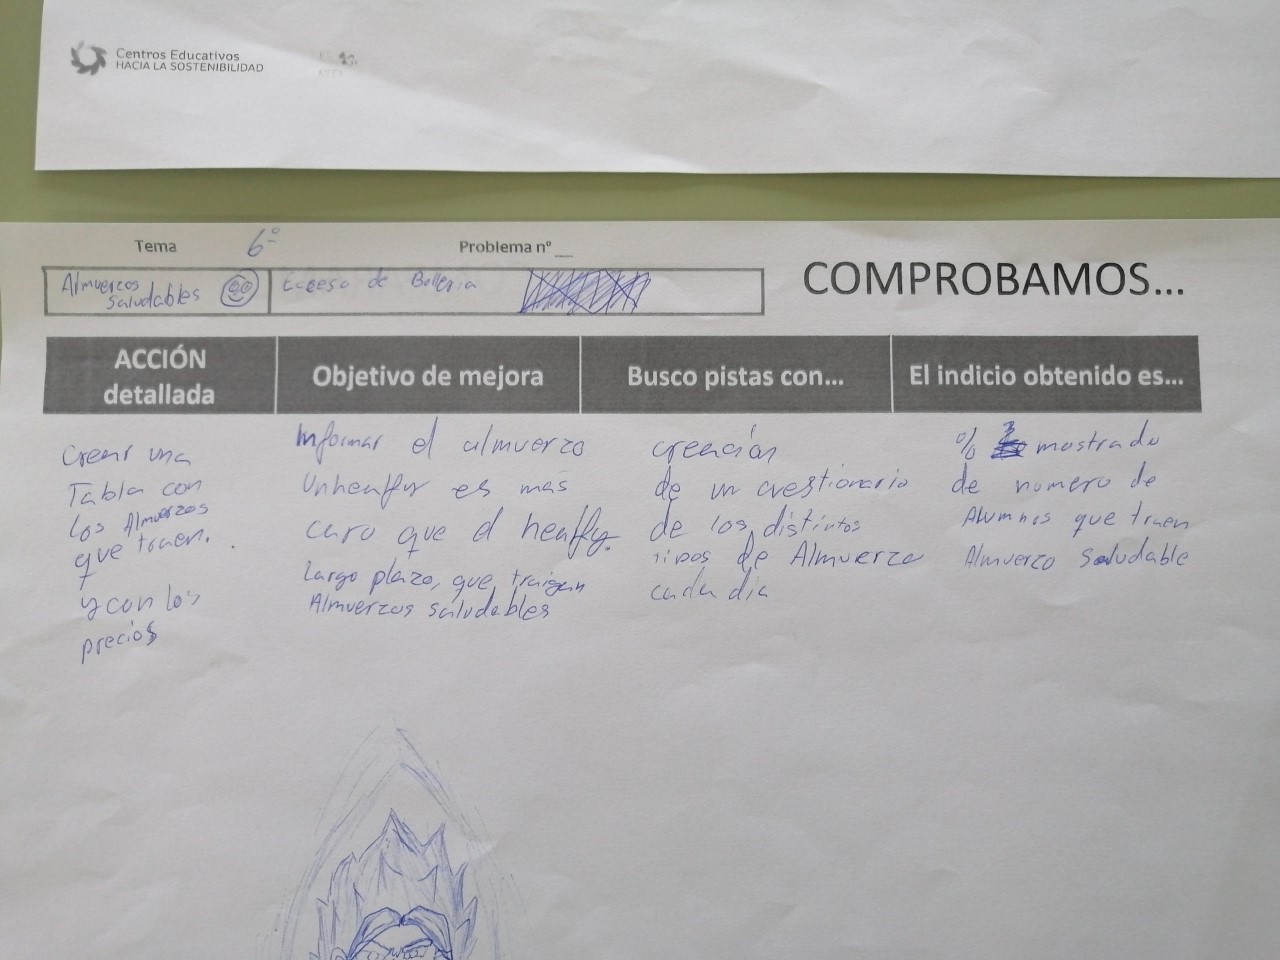 Centros Educativos
HACIA LA SOSTENIBILIDAD
Tema 6º Problema nº__
Almuerzos
Saludables
Exceso de Bolleria
COMPROBAMOS...
ACCIÓN
detallada
Objetivo de mejora
Busco pistas con...
El indicio obtenido es...
Crear una
Tabla con
los Almuerzos
que traen.
y con los
precios
Informar el almuerzo
Unhealfly es mas
caro que el healfly.
Largo plazo, que traigan
Almuerzos saludables
creación
de un cuestionario
de los distintos
tipos de Almuerzo
cada dia
% mostrado
de numero de
Alumnos que traen
Almuerzo Saludable